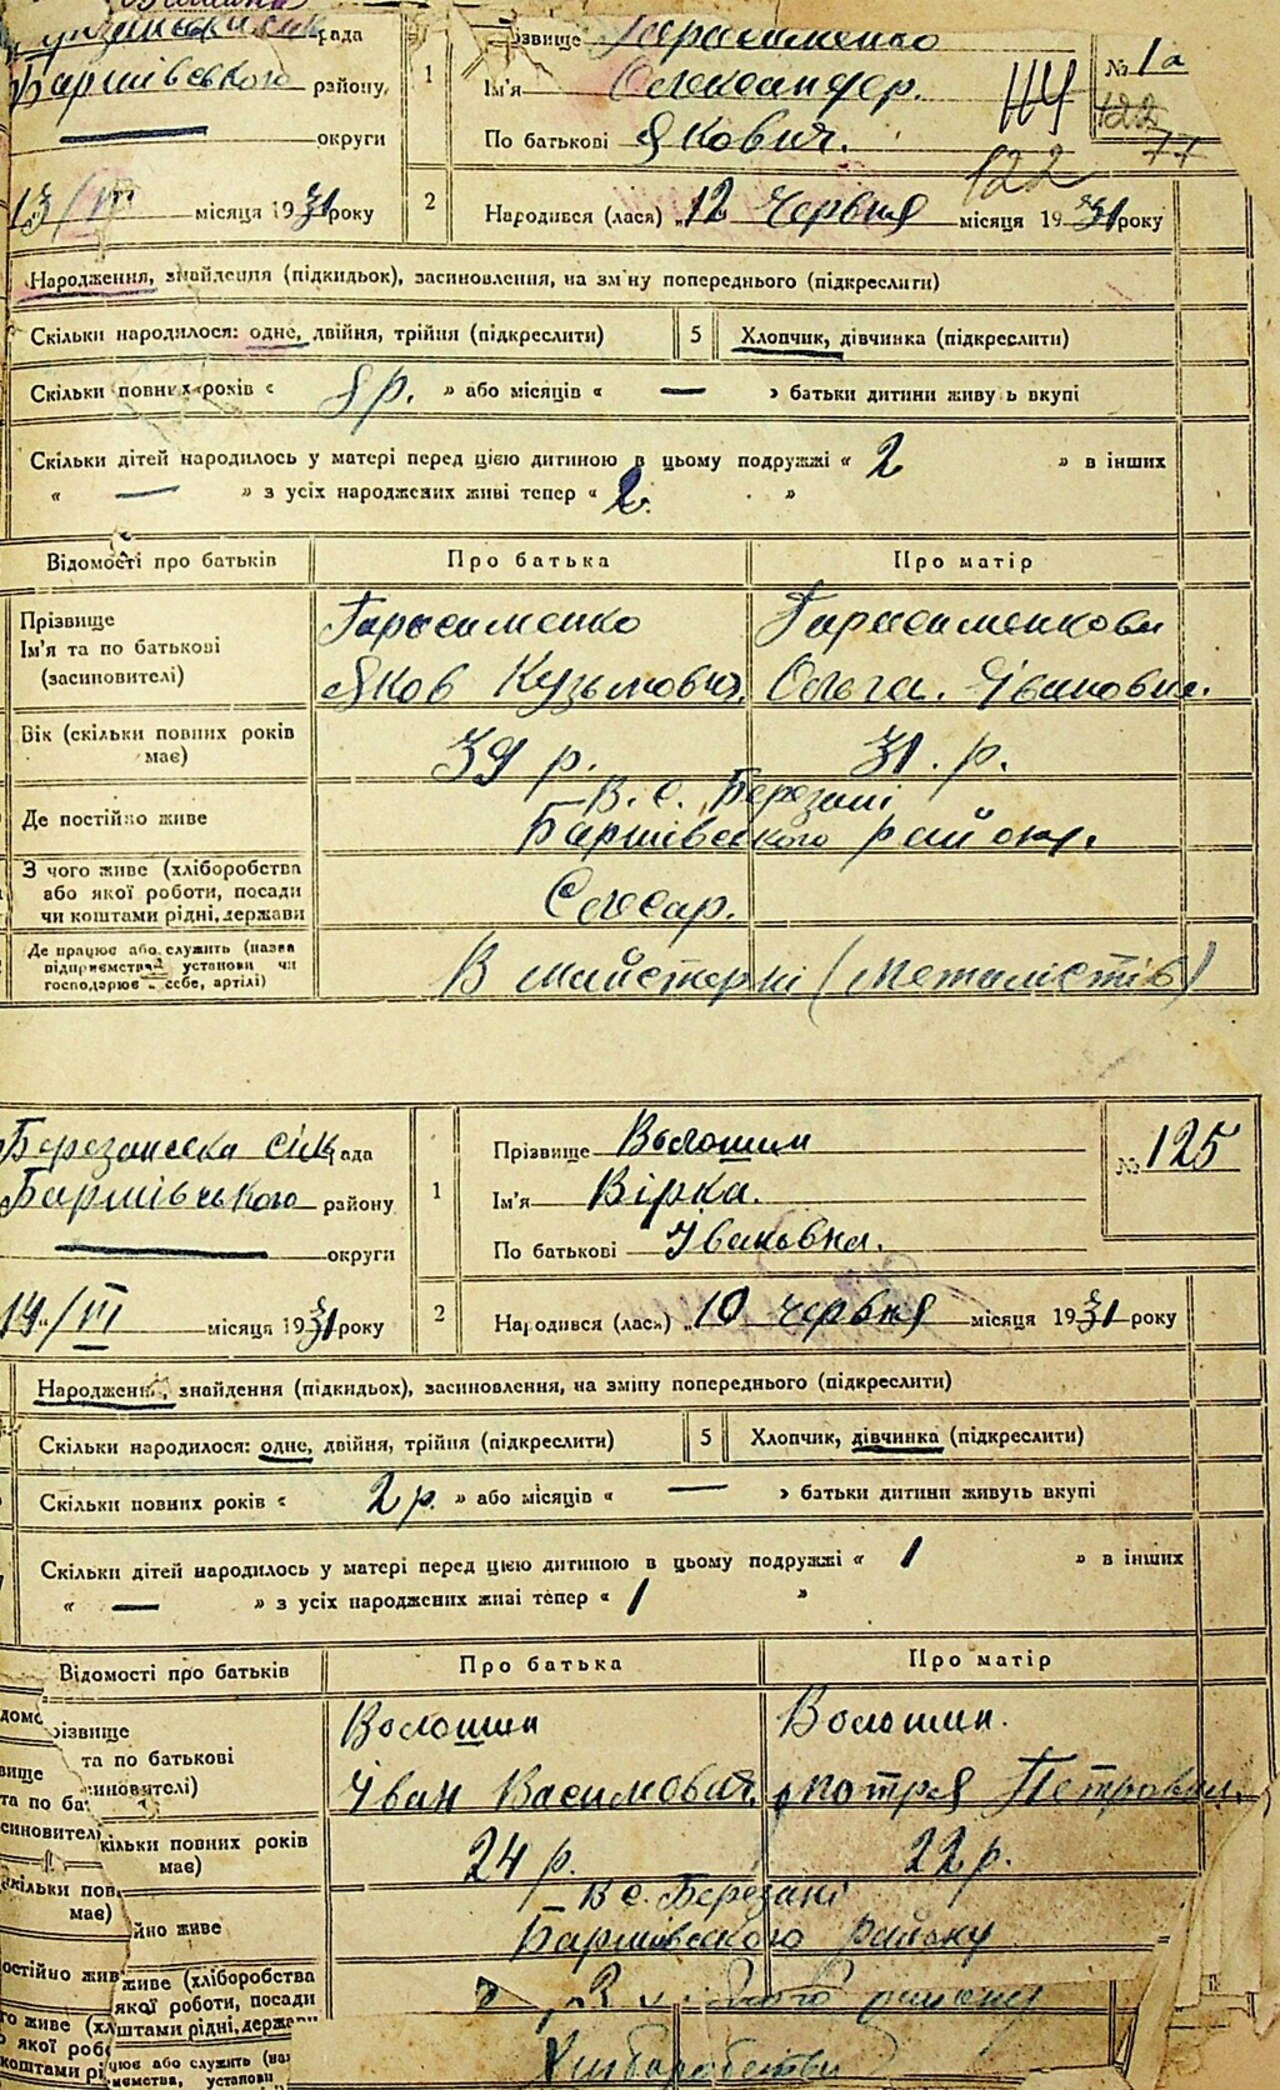 рада
Баришівського району,
округи
Прізвище Гарасименко
1
Ім'я Олександер.
По батькові Якович.
№ 1а
114
122
122
77
13/VI місяця 1931 року
2
Народився (лася) „12 Червня місяця 1931 року
Народження, знайдення (підкидьок), засиновлення, на зміну попереднього (підкреслити)
Скільки народилося: одне, двійня, трійня (підкреслити)
5
Хлопчик, дівчинка (підкреслити)
Скільки повних років « 8 р. » або місяців « — » батьки дитини живуть вкупі
Скільки дітей народилось у матері перед цією дитиною в цьому подружжі « 2 » в інших
« — » з усіх народжених живі тепер « 2. »
Відомості про батьків
Про батька
Про матір
Прізвище
Ім'я та по батькові
(засиновителі)
Гарасименко
Яков Кузьмович.
Гарасименкова
Ольга. Івановна.
Вік (скільки повних років
має)
39 р.
31. р.
Де постійно живе
В. с. Березані
Баришівського району.
З чого живе (хліборобства
або якої роботи, посади
чи коштами рідні, держави
Слюсар.
Де працює або служить (назва
підприємства, установи чи
господарює в себе, артілі)
В майстерні (металістів)
Березанська сільрада
Баришівського району
округи
1
Прізвище Волошин
Ім'я Вірка.
По батькові Івановна.
№ 125
14/VI місяця 1931 року
2
Народився (лася) „10 червня місяця 1931 року
Народження, знайдення (підкидьох), засиновлення, на зміну попереднього (підкреслити)
Скільки народилося: одне, двійня, трійня (підкреслити)
5
Хлопчик, дівчинка (підкреслити)
Скільки повних років « 2 р. » або місяців « — » батьки дитини живуть вкупі
Скільки дітей народилось у матері перед цією дитиною в цьому подружжі « 1 » в інших
« — » з усіх народжених живі тепер « 1 »
Відомості про батьків
Про батька
Про матір
різвище
та по батькові
синовителі)
Волошин
Іван Василович.
Волошин.
Мотря Петровна.
кільки повних років
має)
24 р.
22 р.
йно живе
В с. Березані
Баришівського району
живе (хліборобства
якої роботи, посади
штами рідні, держави
району
Хліборобство
цює або служить (наз
иємства, установи